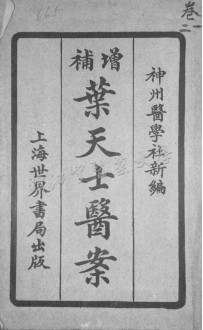 卷二
神州醫學社新編
增補
葉天士醫案
上海世界書局出版